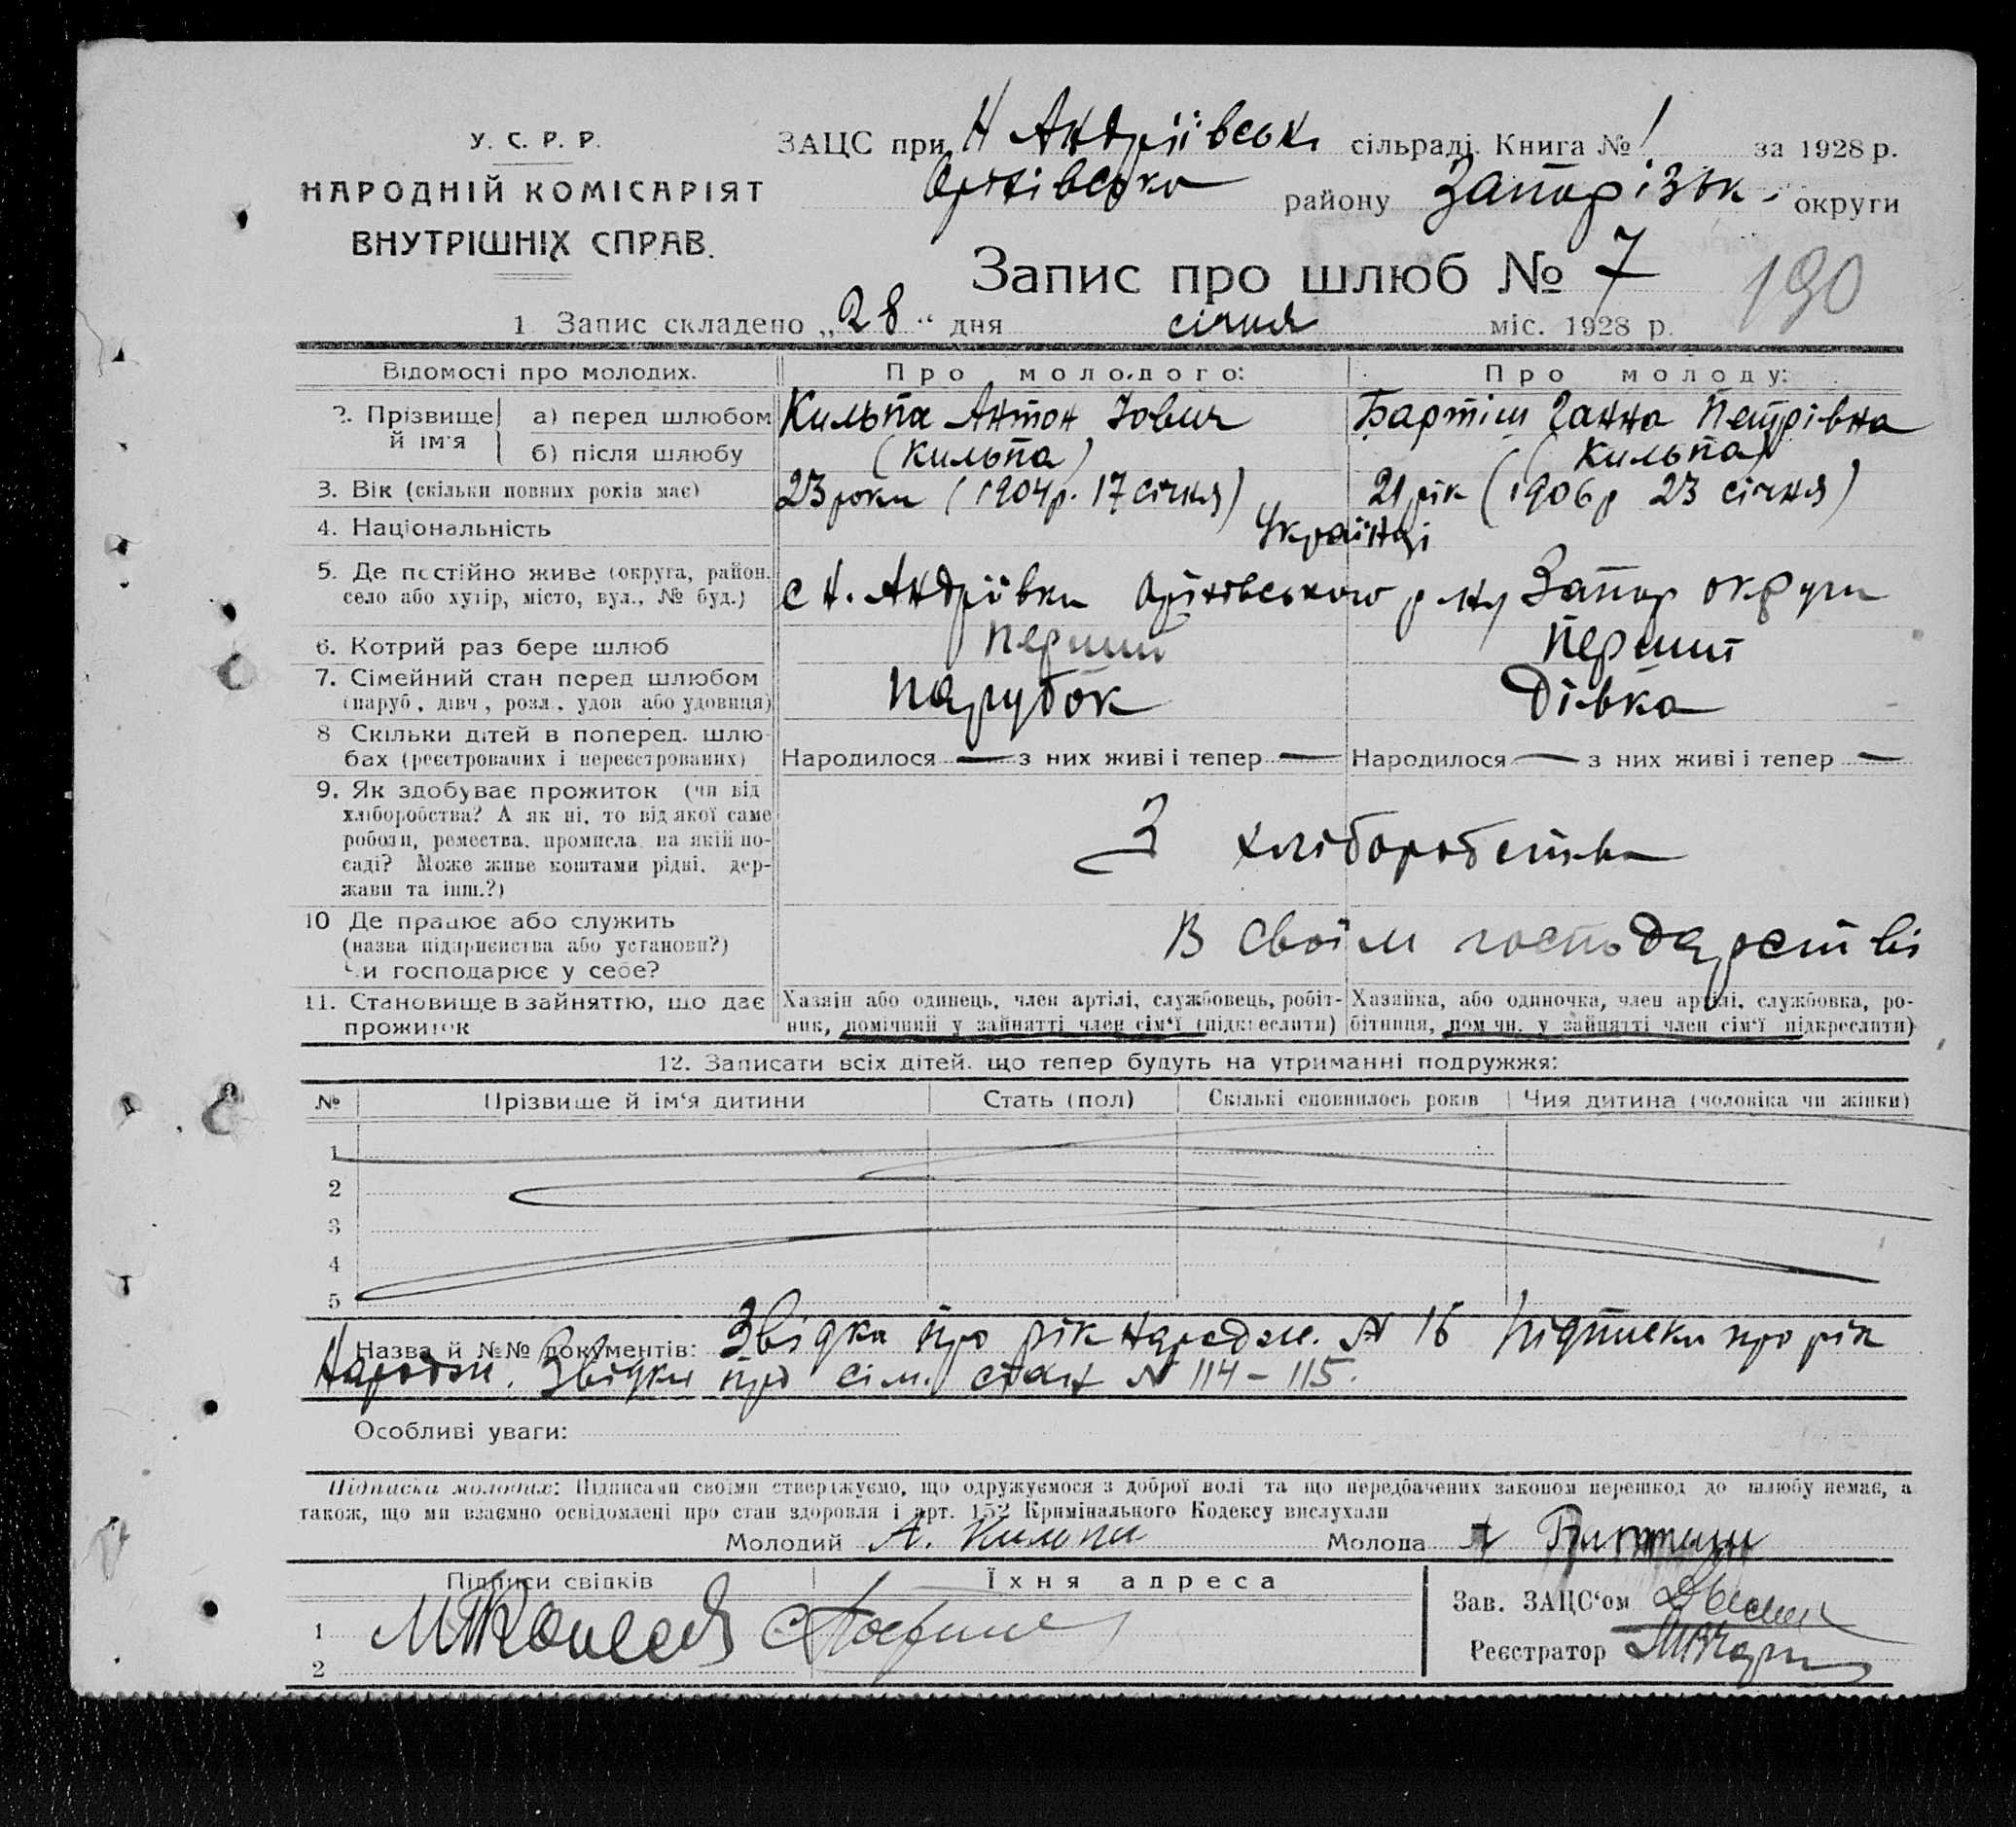 У. С. Р. Р.
НАРОДНІЙ КОМІСАРІЯТ
ВНУТРІШНІХ СПРАВ.
ЗАЦС при Н Андріївськ сільраді. Книга № 1 за 1928 р.
Оріхівсько району Запорізьк. округи
Запис про шлюб № 7
190
1 Запис складено „28“ дня січня міс. 1928 р.
Відомості про молодих. Про молодого: Про молоду:
2. Прізвище й ім'я а) перед шлюбом Кильпа Антон Іович Бартіш Ганна Петрівна
б) після шлюбу (Кильпа) (Кильпа)
3. Вік (скільки повних років має) 23 роки (1904р. 17 січня) 21 рік (1906р 23 січня)
4. Національність Українці
5. Де постійно живе (округа, район,
село або хутір, місто, вул., № буд.) с Н. Андріївки Оріхівського р-ну Запор округи
6. Котрий раз бере шлюб перший перший
7. Сімейний стан перед шлюбом
(паруб., дівч., розл., удов. або удовиця) парубок дівка
8 Скільки дітей в поперед. шлю-
бах (реєстрованих і нереєстрованих) Народилося — з них живі і тепер — Народилося — з них живі і тепер —
9. Як здобуває прожиток (чи від
хліборобства? А як ні, то від якої саме
роботи, ремества, промисла, на якій по-
саді? Може живе коштами рідні, дер-
жави та інш.?)
З хліборобства
10 Де працює або служить
(назва підприємства або установи?)
Чи господарює у себе?
В своїм господарстві
11. Становище в зайняттю, що дає
прожиток
Хазяїн або одинець, член артілі, службовець, робіт-
ник, помічний у зайнятті член сім'ї (підкреслити)
Хазяйка, або одиночка, член артілі, службовка, ро-
бітниця, помічн. у зайнятті член сім'ї підкреслити)
12. Записати всіх дітей, що тепер будуть на утриманні подружжя:
№ Прізвище й ім'я дитини Стать (пол) Скількі сповнилось років Чия дитина (чоловіка чи жінки)
1
2
3
4
5
Назва й №№ документів: Звідка про рік народж. № 16 Підписки про рік
народж. Звідки про сім. стан № 114 – 115.
Особливі уваги:
Підписка молодих: Підписами своїми стверджуємо, що одружуємося з доброї волі та що передбачених законом перешкод до шлюбу немає, а
також, що ми взаємно освідомлені про стан здоровля і арт. 152 Кримінального Кодексу вислухали
Молодий А. Кильпа Молода
Підписи свідків Їхня адреса
Зав. ЗАЦС'ом
1
Реєстратор
2